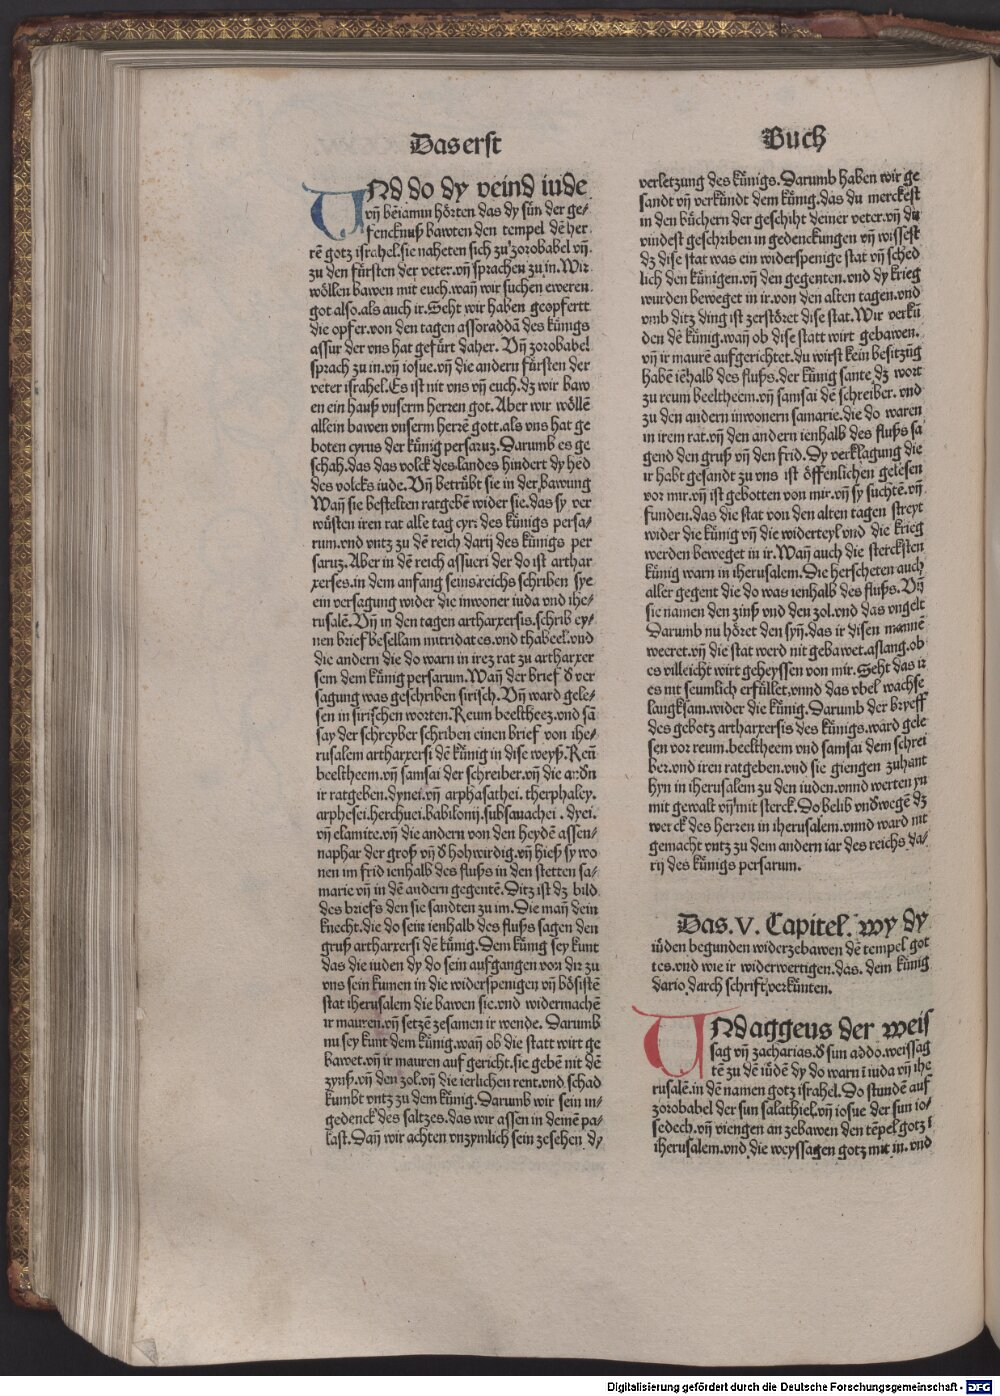 Das erst
Buch
VNd do dy veind iude
vñ bēiamin hoͤrten das dy süň der ge-
fencknuß bawten den tempel dē her
rē gotz israhel.sie naheten sich zu zorobabel vñ
zu den fürsten der veter.vñ sprachen zu in.Wir
woͤllen bawen mit euch.wañ wir suchen eweren
got also.als auch ir.Seht wir haben geopfertt
die opfer.von den tagen assoraddā des künigs
assur der vns hat gefürt daher. Vñ zorobabel
sprach zu in.vñ iosue.vñ die andern fürsten der
veter israhel.Es ist nit vns vñ euch.dz wir baw
en ein hauß vnserm herren got.Aber wir woͤllē
allein bawen vnserm herrē gott.als vns hat ge
boten cyrus der künig persaruz.Darumb es ge
schah.das das volck des landes hindert dy hēd
des volcks iude.Vñ betrübt sie in der bawung
Wañ sie bestelten ratgebē wider sie.das sy ver
wüsten iren rat alle tag cyri des künigs persa-
rum.vnd vntz zu dē reich darij des künigs per
saruz.Aber in dē reich assueri der do ist arthar
xerses.in dem anfang seins reichs schriben sye
ein versagung wider die inwoner iuda vnd ihe-
rusalē.Vñ in den tagen artharxersis.schrib ey-
nen brief besellam mitridates.vnd thabeel.vnd
die andern die do warn in irez rat zu artharxer
sem dem künig persarum.Wañ der brief d ver
sagung was geschriben sirisch.Vñ ward gele-
sen in sirischen worten.Reum beeltheez.vnd sā
say der schreyber schriben einen brief von ihe-
rusalem artharxersi dē künig in dise weyß.Reū
beeltheem.vñ samsai der schreiber.vñ die andn
ir ratgeben.dynei.vñ arphasathei.therphaley.
arphesei.herchuei.babilonij.subsanachei.dyei.
vñ elamite.vñ die andern von den heydē assen-
naphar der groß vñ d hohwirdig.vñ hieß sy wo
nen im frid ienhalb des fluß in den stetten sa-
marie vñ in dē andern gegentē.Ditz ist dz bild
des briefs den sie sandten zu im.Die mañ dein
knecht.die do sein ienhalb des fluß sagen den
gruß artharxersi dē künig.Dem künig sey kunt
das die iuden dy do sein aufgangen von dir zu
vns sein kumen in die widerspenigen vñ boͤsistē
stat iherusalem die bawen sie.vnd widermachē
ir mauren.vñ setzē zesamen ir wende. Darumb
nu sey kunt dem künig.wañ ob die statt wirt ge
bawet.vñ ir mauren auf gericht.sie gebē nit dē
zynß.vñ den zol.vñ die ierlichen rent.vnd schad
kumbt vntz zu dem künig.Darumb wir sein in-
gedenck des saltzes.das wir assen in deinē pa-
last.Dañ wir achten vnzymlich sein zesehen dy
verletzung des künigs.Darumb haben wir ge
sandt vñ verkündt dem künig.das du merckest
in den büchern der geschiht deiner veter.vñ du
vindest geschriben in gedenckungen vñ wissest
dz dise stat was ein widerspenige stat vñ sched
lich den künigen.vñ den gegenten.vnd dy krieg
wurden beweget in ir.von den alten tagen.vnd
vmb ditz ding ist zerstoͤret dise stat.Wir verkü
den dē künig.wañ ob dise statt wirt gebawen.
vñ ir maurē aufgerichtet.du wirst kein besitzūg
habē iēhalb des fluß.der künig sante dz wort
zu reum beeltheem.vñ samsai dē schreiber.vnd
zu den andern inwonern samarie.die do waren
in irem rat.vñ den andern ienhalb des fluß sa
gend den gruß vñ den frid.Dy verklagung die
ir habt gesandt zu vns ist oͤffenlichen gelesen
vor mir.vñ ist gebotten von mir.vñ sy suchtē.vñ
funden.das die stat von den alten tagen streyt
wider die künig vñ die widerteyl vnd die krieg
werden beweget in ir.Wañ auch die stercksten
künig warn in iherusalem.Die herscheten auch
aller gegent die do was ienhalb des fluß.Vñ
sie namen den zinß vnd den zol.vnd das vngelt
Darumb nu hoͤret den syñ.das ir disen mannē
weeret.vñ die stat werd nit gebawet.aslang.ob
es villeicht wirt geheyssen von mir.Seht das ir
es nit seumlich erfüllet.vnnd das vbel wachse
langksam.wider die künig.Darumb der bryeff
des gebotz artharxersis des künigs.ward gele
sen vor reum.beeltheem vnd samsai dem schrei
ber.vnd iren ratgeben.vnd sie giengen zuhant
hyn in iherusalem zu den iuden.vnnd werten yn
mit gewalt vñ mit sterck.Do belib vndwegē dz
werck des herren in iherusalem.vnnd ward nit
gemacht vntz zu dem andern iar des reichs da-
rij des künigs persarum.
Das.V. Capitel. wy dy
iüden begunden widerzebawen dē tempel got
tes.vnd wie ir widerwertigen.das.dem künig
dario darch schrift verkünten.
VNd aggeus der weis
sag vñ zacharias.d sun addo.weissag
tē zu dē iüdē dy do warn ī iuda vñ ihe
rusalē.in dē namen gotz israhel.Do stundē auf
zorobabel der sun salathiel.vñ iosue der sun io-
sedech.vñ viengen an zebawen den tēpel gotz ī
iherusalem.vnd die weyssagen gotz mit in.vnd
Digitalisierung gefördert durch die Deutsche Forschungsgemeinschaft - DFG